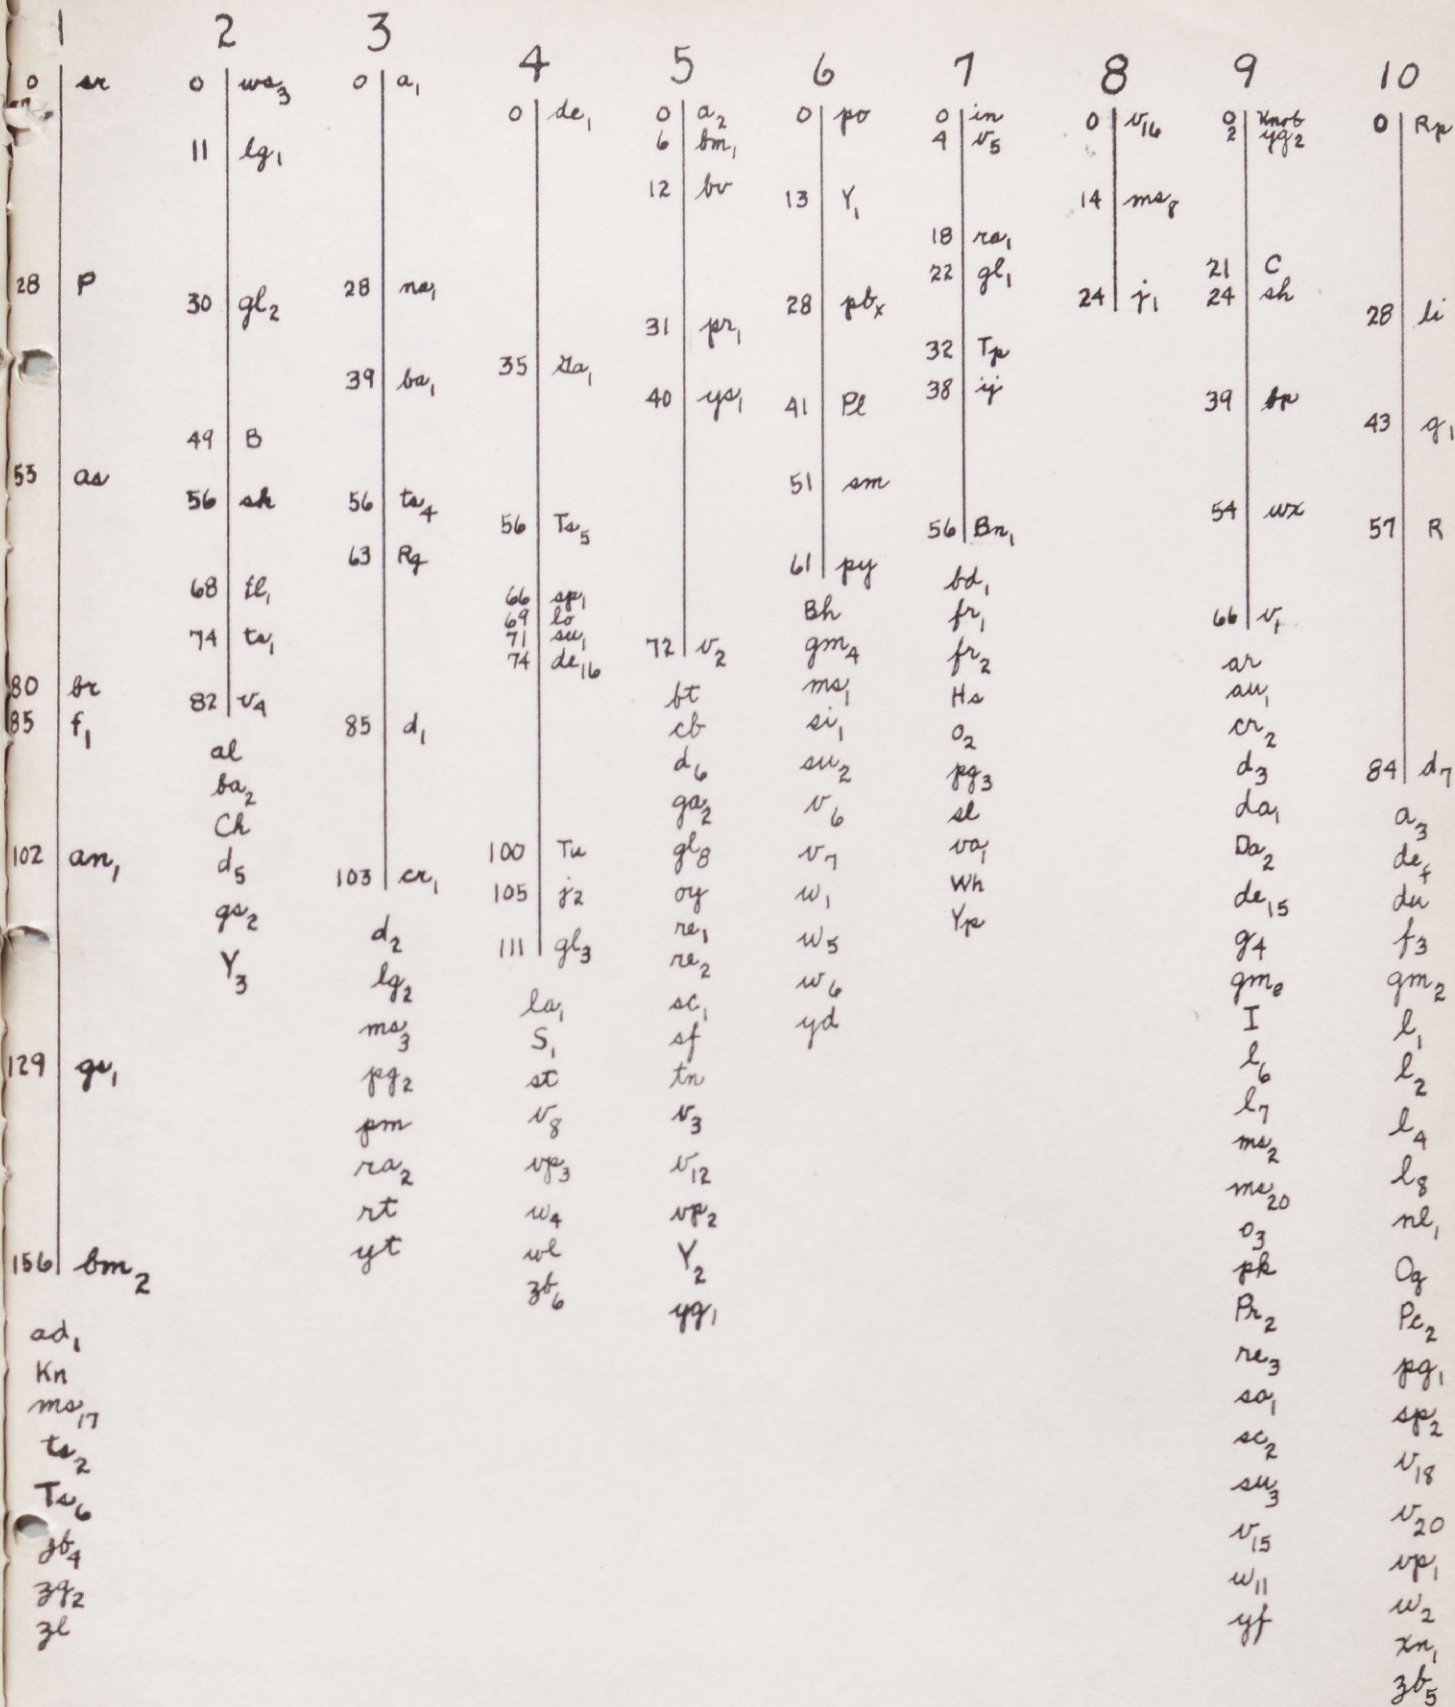 1
0 sr
28 P
53 as
80 br
85 f1
102 an1
129 gs1
156 bm2
ad1
Kn
ms17
ts2
Ts6
zb4
zg2
zl
2
0 ws3
11 lg1
30 gl2
49 B
56 sk
68 tl1
74 ts1
82 v4
al
ba2
Ch
d5
gs2
Y3
3
0 a1
28 na1
39 ba1
56 ts4
63 Rg
85 d1
103 cr1
d2
lg2
ms3
pg2
pm
ra2
rt
yt
4
0 de1
35 Ga1
56 Ts5
66 sp1
69 lo
71 su1
74 de16
100 Tu
105 j2
111 gl3
la1
S1
st
v8
vp3
w4
wl
zb6
5
0 a2
6 bm1
12 bv
31 pr1
40 ys1
72 v2
bt
cb
d6
ga2
gl8
oy
re1
re2
sc1
sf
tn
v3
v12
vp2
Y2
yg1
6
0 po
13 Y1
28 pbx
41 Pl
51 sm
61 py
Bh
gm4
ms1
si1
su2
v6
v7
w1
w5
w6
yd
7
0 in
4 v5
18 ra1
22 gl1
32 Tp
38 ij
56 Bn1
bd1
fr1
fr2
Hs
o2
pg3
sl
va1
Wh
Yp
8
0 v16
14 ms8
24 j1
9
0 Knot
2 yg2
21 C
24 sh
39 bp
54 wx
66 v1
ar
au1
cr2
d3
da1
Da2
de15
g4
gme
I
l6
l7
ms2
ms20
o3
pk
Pr2
re3
sa1
sc2
su3
v15
w11
yf
10
0 Rp
28 li
43 g1
57 R
84 d7
a3
def
du
f3
gm2
l1
l2
l4
l8
nl1
Og
Pc2
pg1
sp2
v18
v20
vp1
w2
xn1
zb5